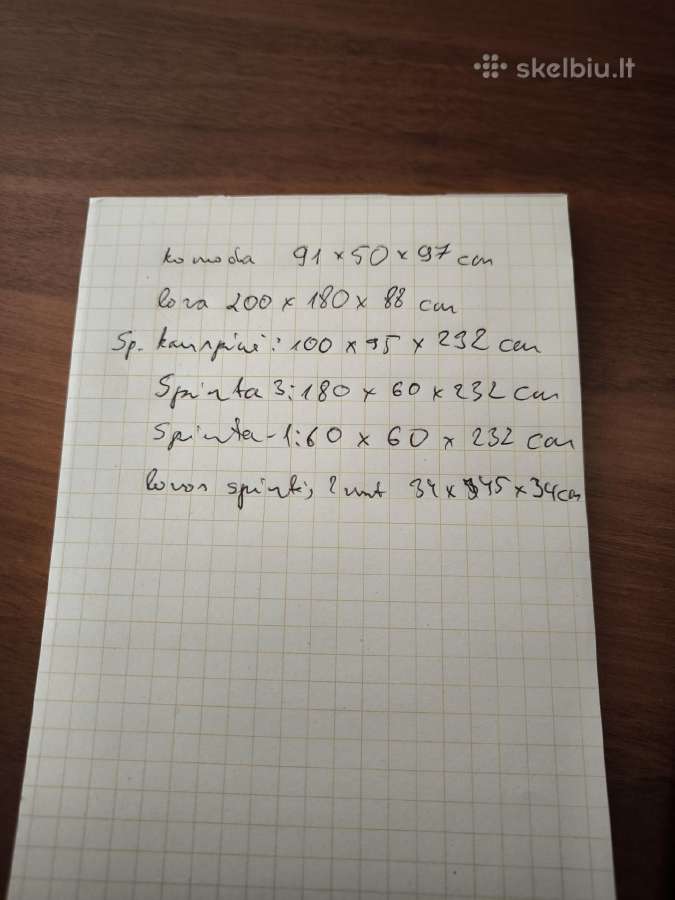 skelbiu.lt
komoda 91 x 50 x 97 cm
lova 200 x 180 x 88 cm
Sp. kampinė: 100 x 95 x 232 cm
Spinta 3: 180 x 60 x 232 cm
Spinta-1: 60 x 60 x 232 cm
lovos spint; 2 vnt 34 x 45 x 34 cm